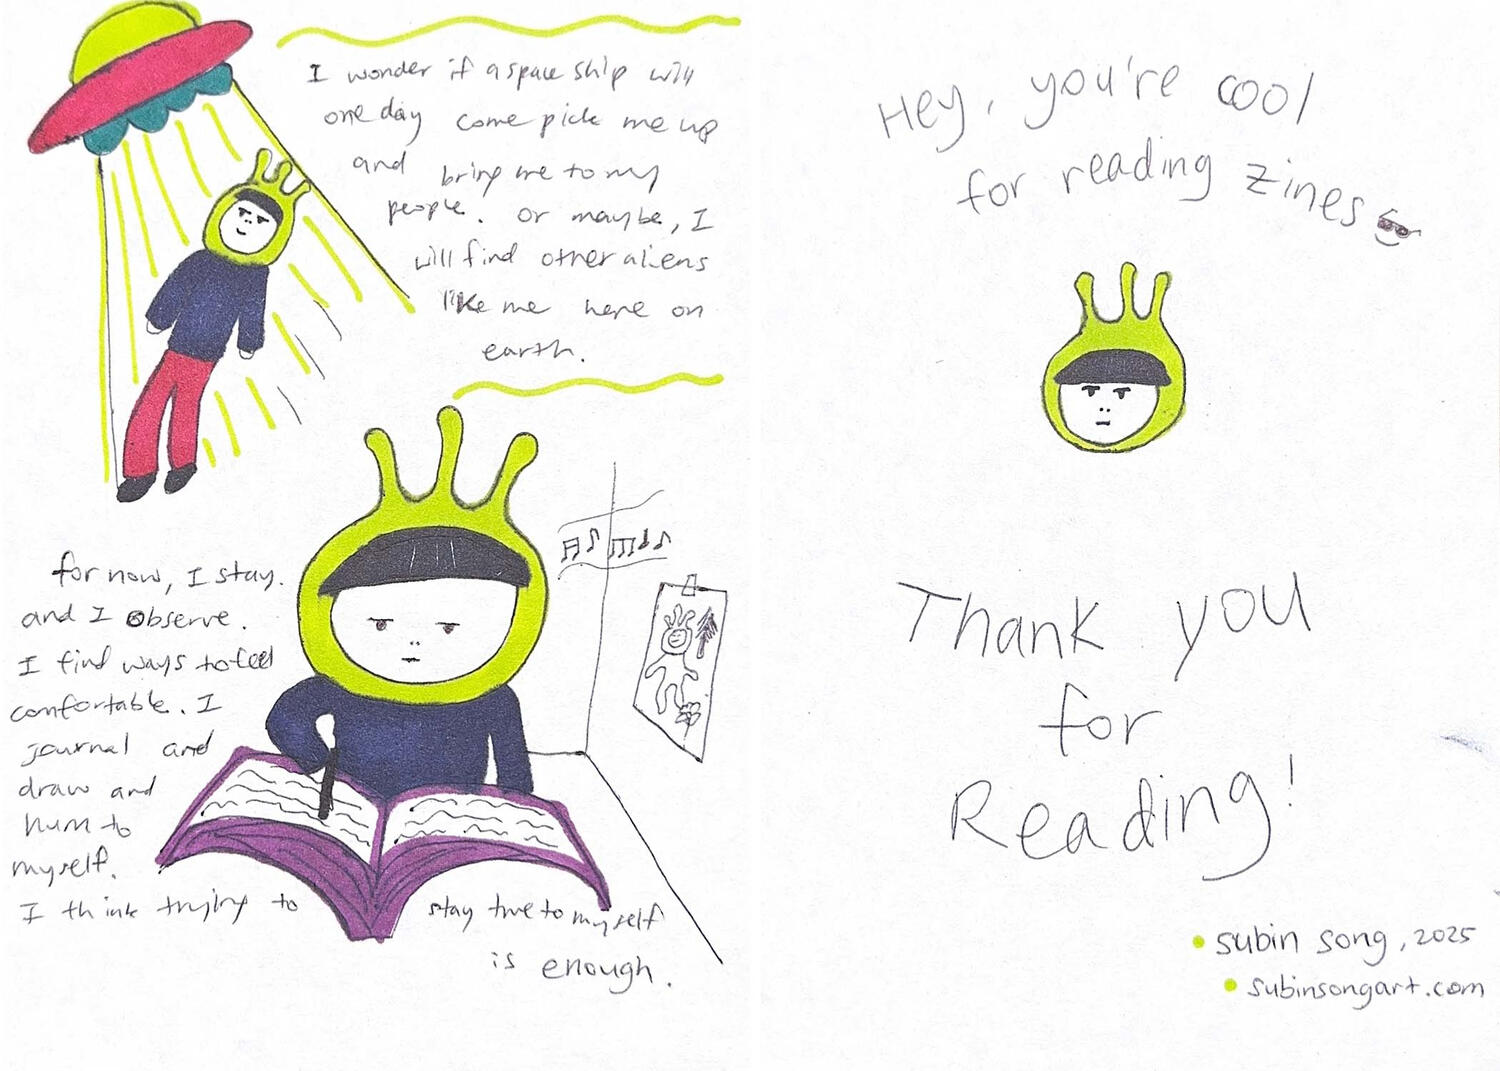 I wonder if a space ship will
one day come pick me up
and bring me to my
people. Or maybe, I
will find other aliens
like me here on
earth.
for now, I stay.
and I observe.
I find ways to feel
comfortable. I
journal and
draw and
hum to
myself.
I think trying to stay true to myself
is enough.
Hey, you're cool
for reading zines
Thank you
for
Reading!
subin song, 2025
subinsongart.com